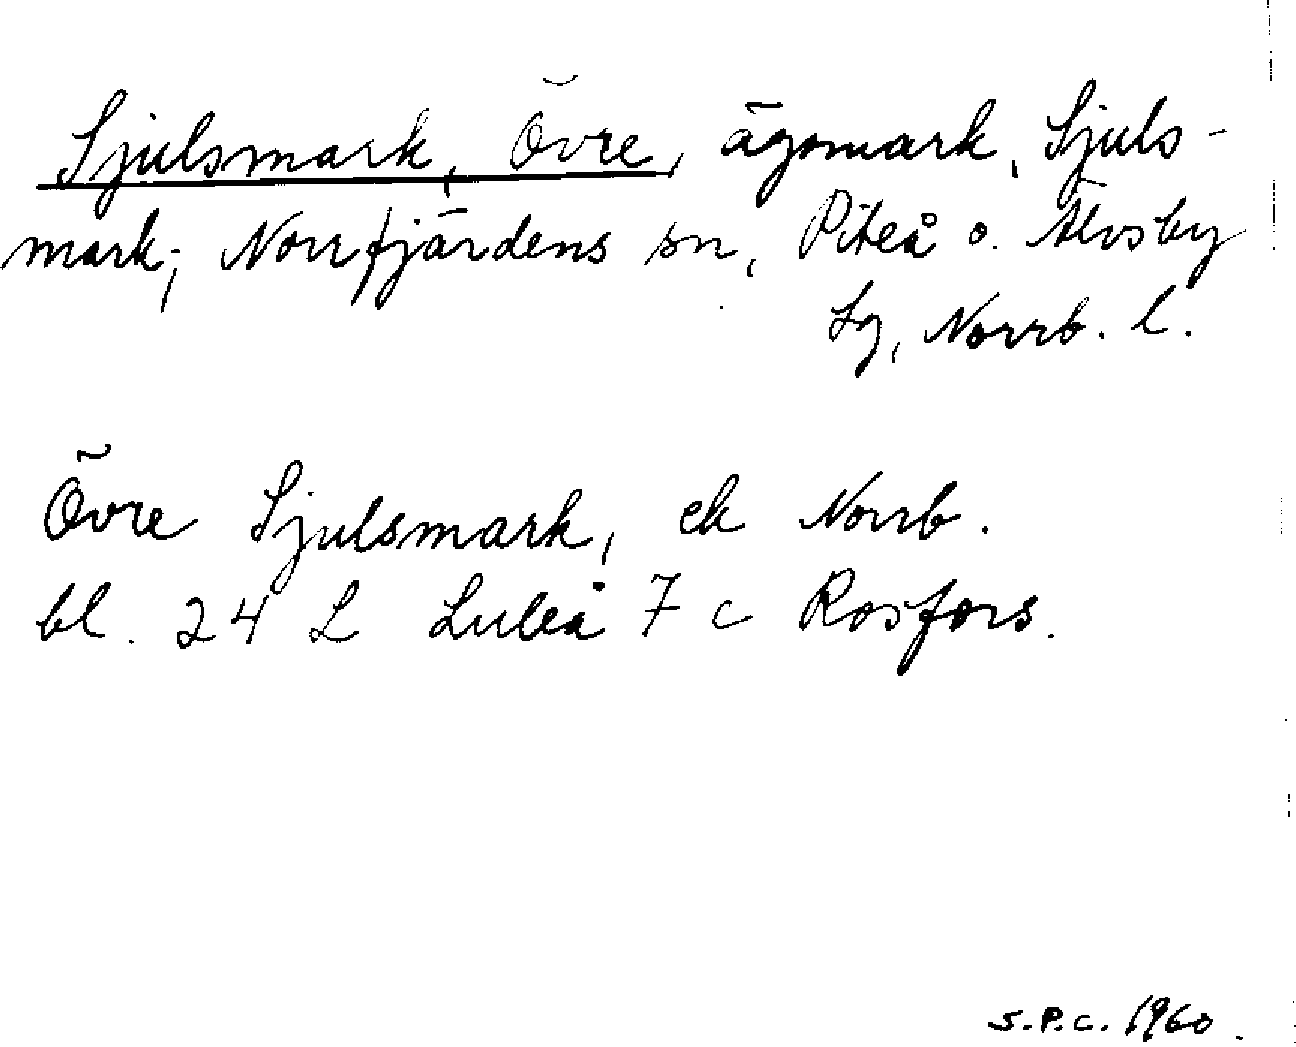 Sjulsmark, Övre, ägomark, Sjuls-
mark; Norrfjärdens sn, Piteå o. Älvsby
tg, Norrb. l.
Övre Sjulsmark, ek Norrb.
bl. 24 L Luleå 7 c Rosfors.
S.P.C. 1960.